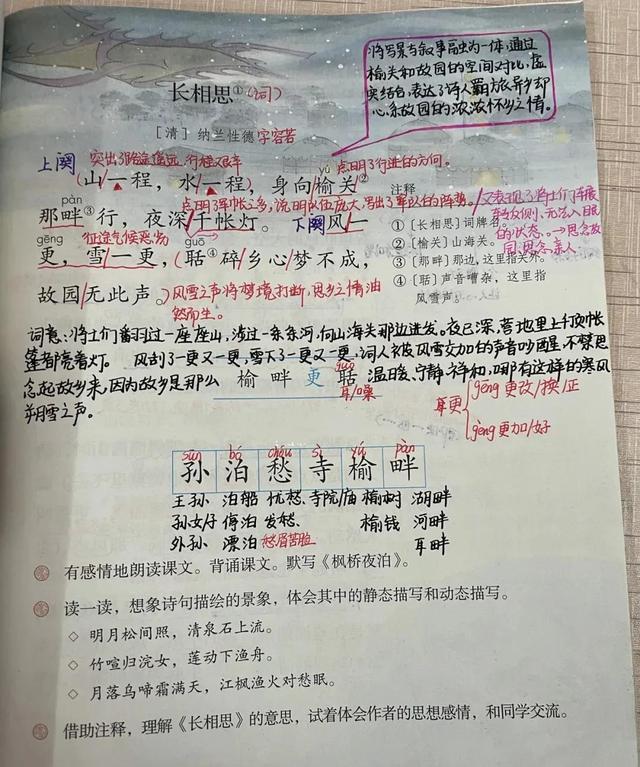 将写景与叙事融为一体,通过
榆关和故园的空间对比,虚
实结合,表达了诗人羁旅异乡却
心系故园的浓浓怀乡之情。
长相思①(词)
[清] 纳兰性德 字容若
上阕 突出了路途遥远,行程艰辛 yú 点明了行进的方向。
(山/一程,水/一程,身向/榆关②
注释
pàn 点明了帐之多,说明队伍庞大,写出了军队的阵势。
那畔③行,夜深/千帐灯。 下阕 风/一
又表现了将士们辗
转反侧、无法入眠
的状态。→思念故
园、思念亲人
①〔长相思〕词牌名
②〔榆关〕山海关。
③〔那畔〕那边,这里指关外。
④〔聒〕声音嘈杂,这里指
风雪声。
gēng 征途气候恶劣 guō
更,雪/一更,(聒④碎/乡心/梦不成,
故园/无此声。) 风雪之声将梦境打断,思乡之情油
然而生。
词意:将士们翻过一座座山,淌过一条条河,向山海关那边进发。夜已深,营地里上千顶帐
篷都亮着灯。 风刮了一更又一更,雪下了一更又一更,词人被风雪交加的声音吵醒,不禁思
念起故乡来,因为故乡是那么 温暖、宁静、祥和,哪有这样的寒风
朔雪之声。
榆 畔 更 聒
guō
耳/噪
更 gēng 更改/换/正
gèng 更加/好
sūn bó chóu sì yú pàn
孙 泊 愁 寺 榆 畔
王孙 泊船 忧愁 寺院/庙 榆树 湖畔
孙女/子 停泊 发愁 榆钱 河畔
外孙 漂泊 愁眉苦脸 耳畔
有感情地朗读课文。背诵课文。默写《枫桥夜泊》。
读一读,想象诗句描绘的景象,体会其中的静态描写和动态描写。
◇ 明月松间照,清泉石上流。
◇ 竹喧归浣女,莲动下渔舟。
◇ 月落乌啼霜满天,江枫渔火对愁眠。
借助注释,理解《长相思》的意思,试着体会作者的思想感情,和同学交流。